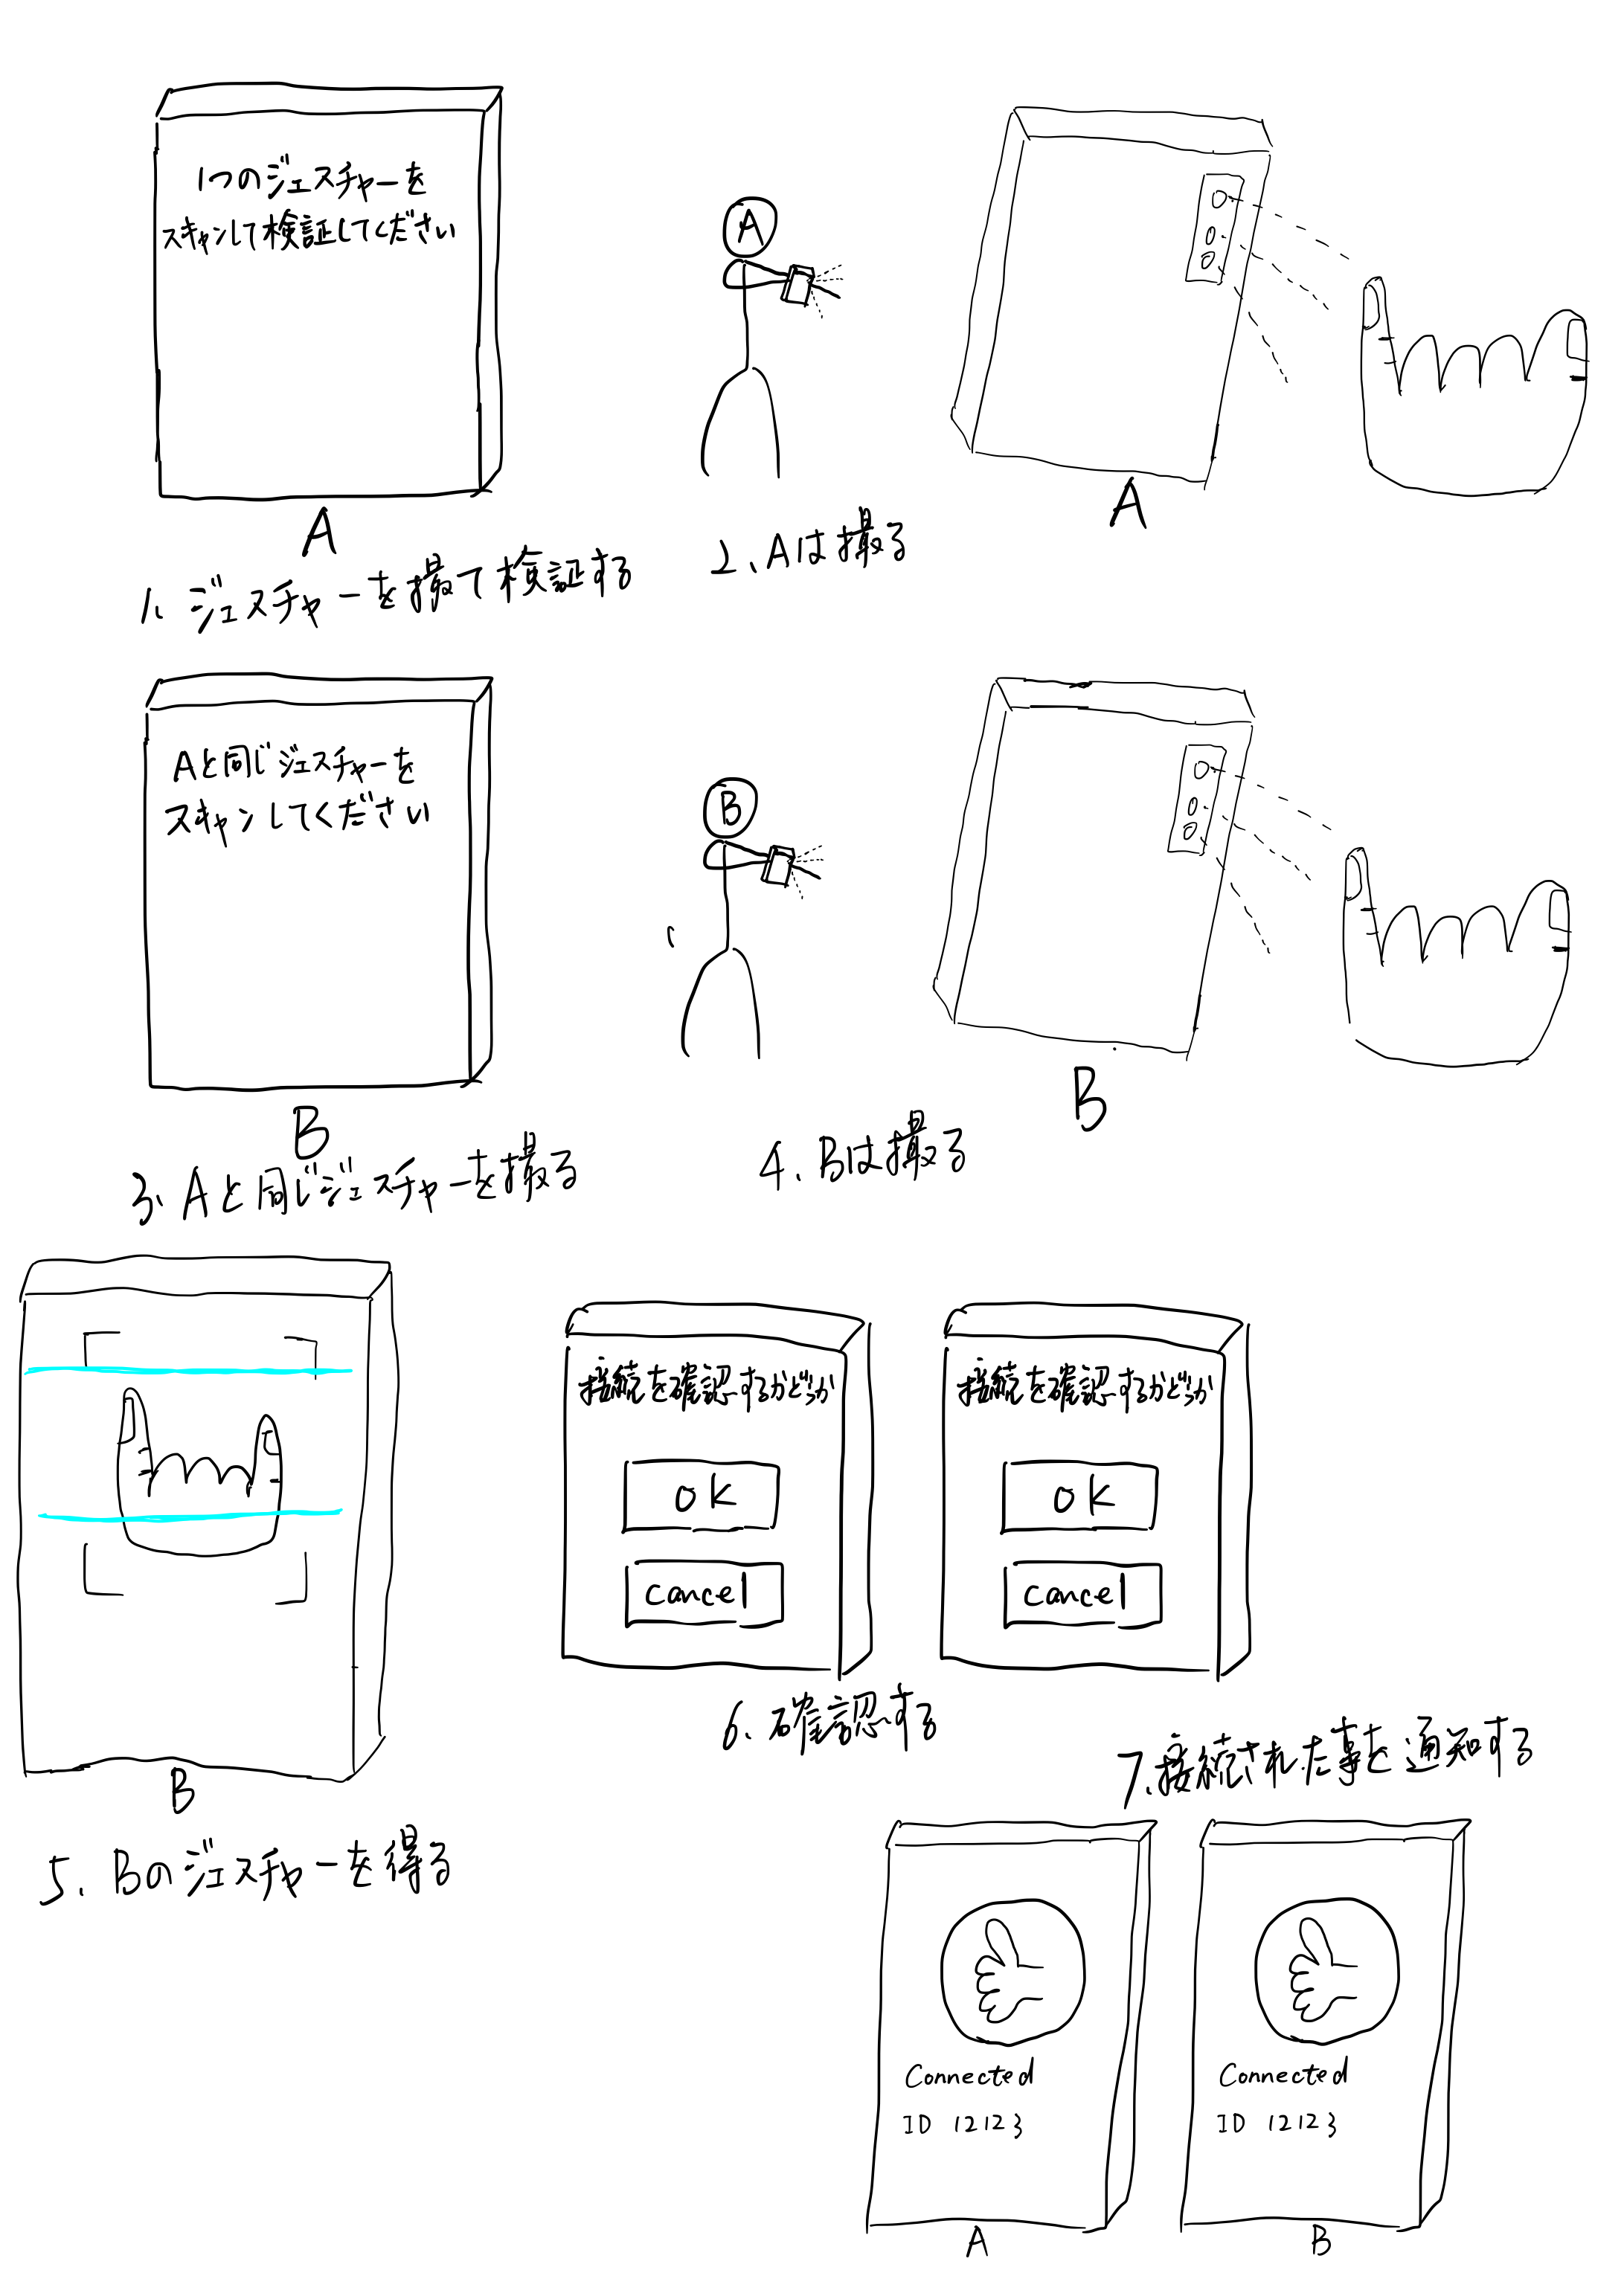 1つのジェスチャーを
スキャンして検証してください
A
1. ジェスチャーを撮て検証する
A
2、Aは撮る
A
Aと同じジェスチャーを
スキャンしてください
B
3、Aと同じジェスチャーを撮る
B
4、Bは撮る
B
B
5、Bのジェスチャーを得る
接続を確認するかどうか
OK
cancel
接続を確認するかどうか
OK
cancel
6、確認する
7.接続された事を通知する
Connected
ID 12123
A
Connected
ID 12123
B